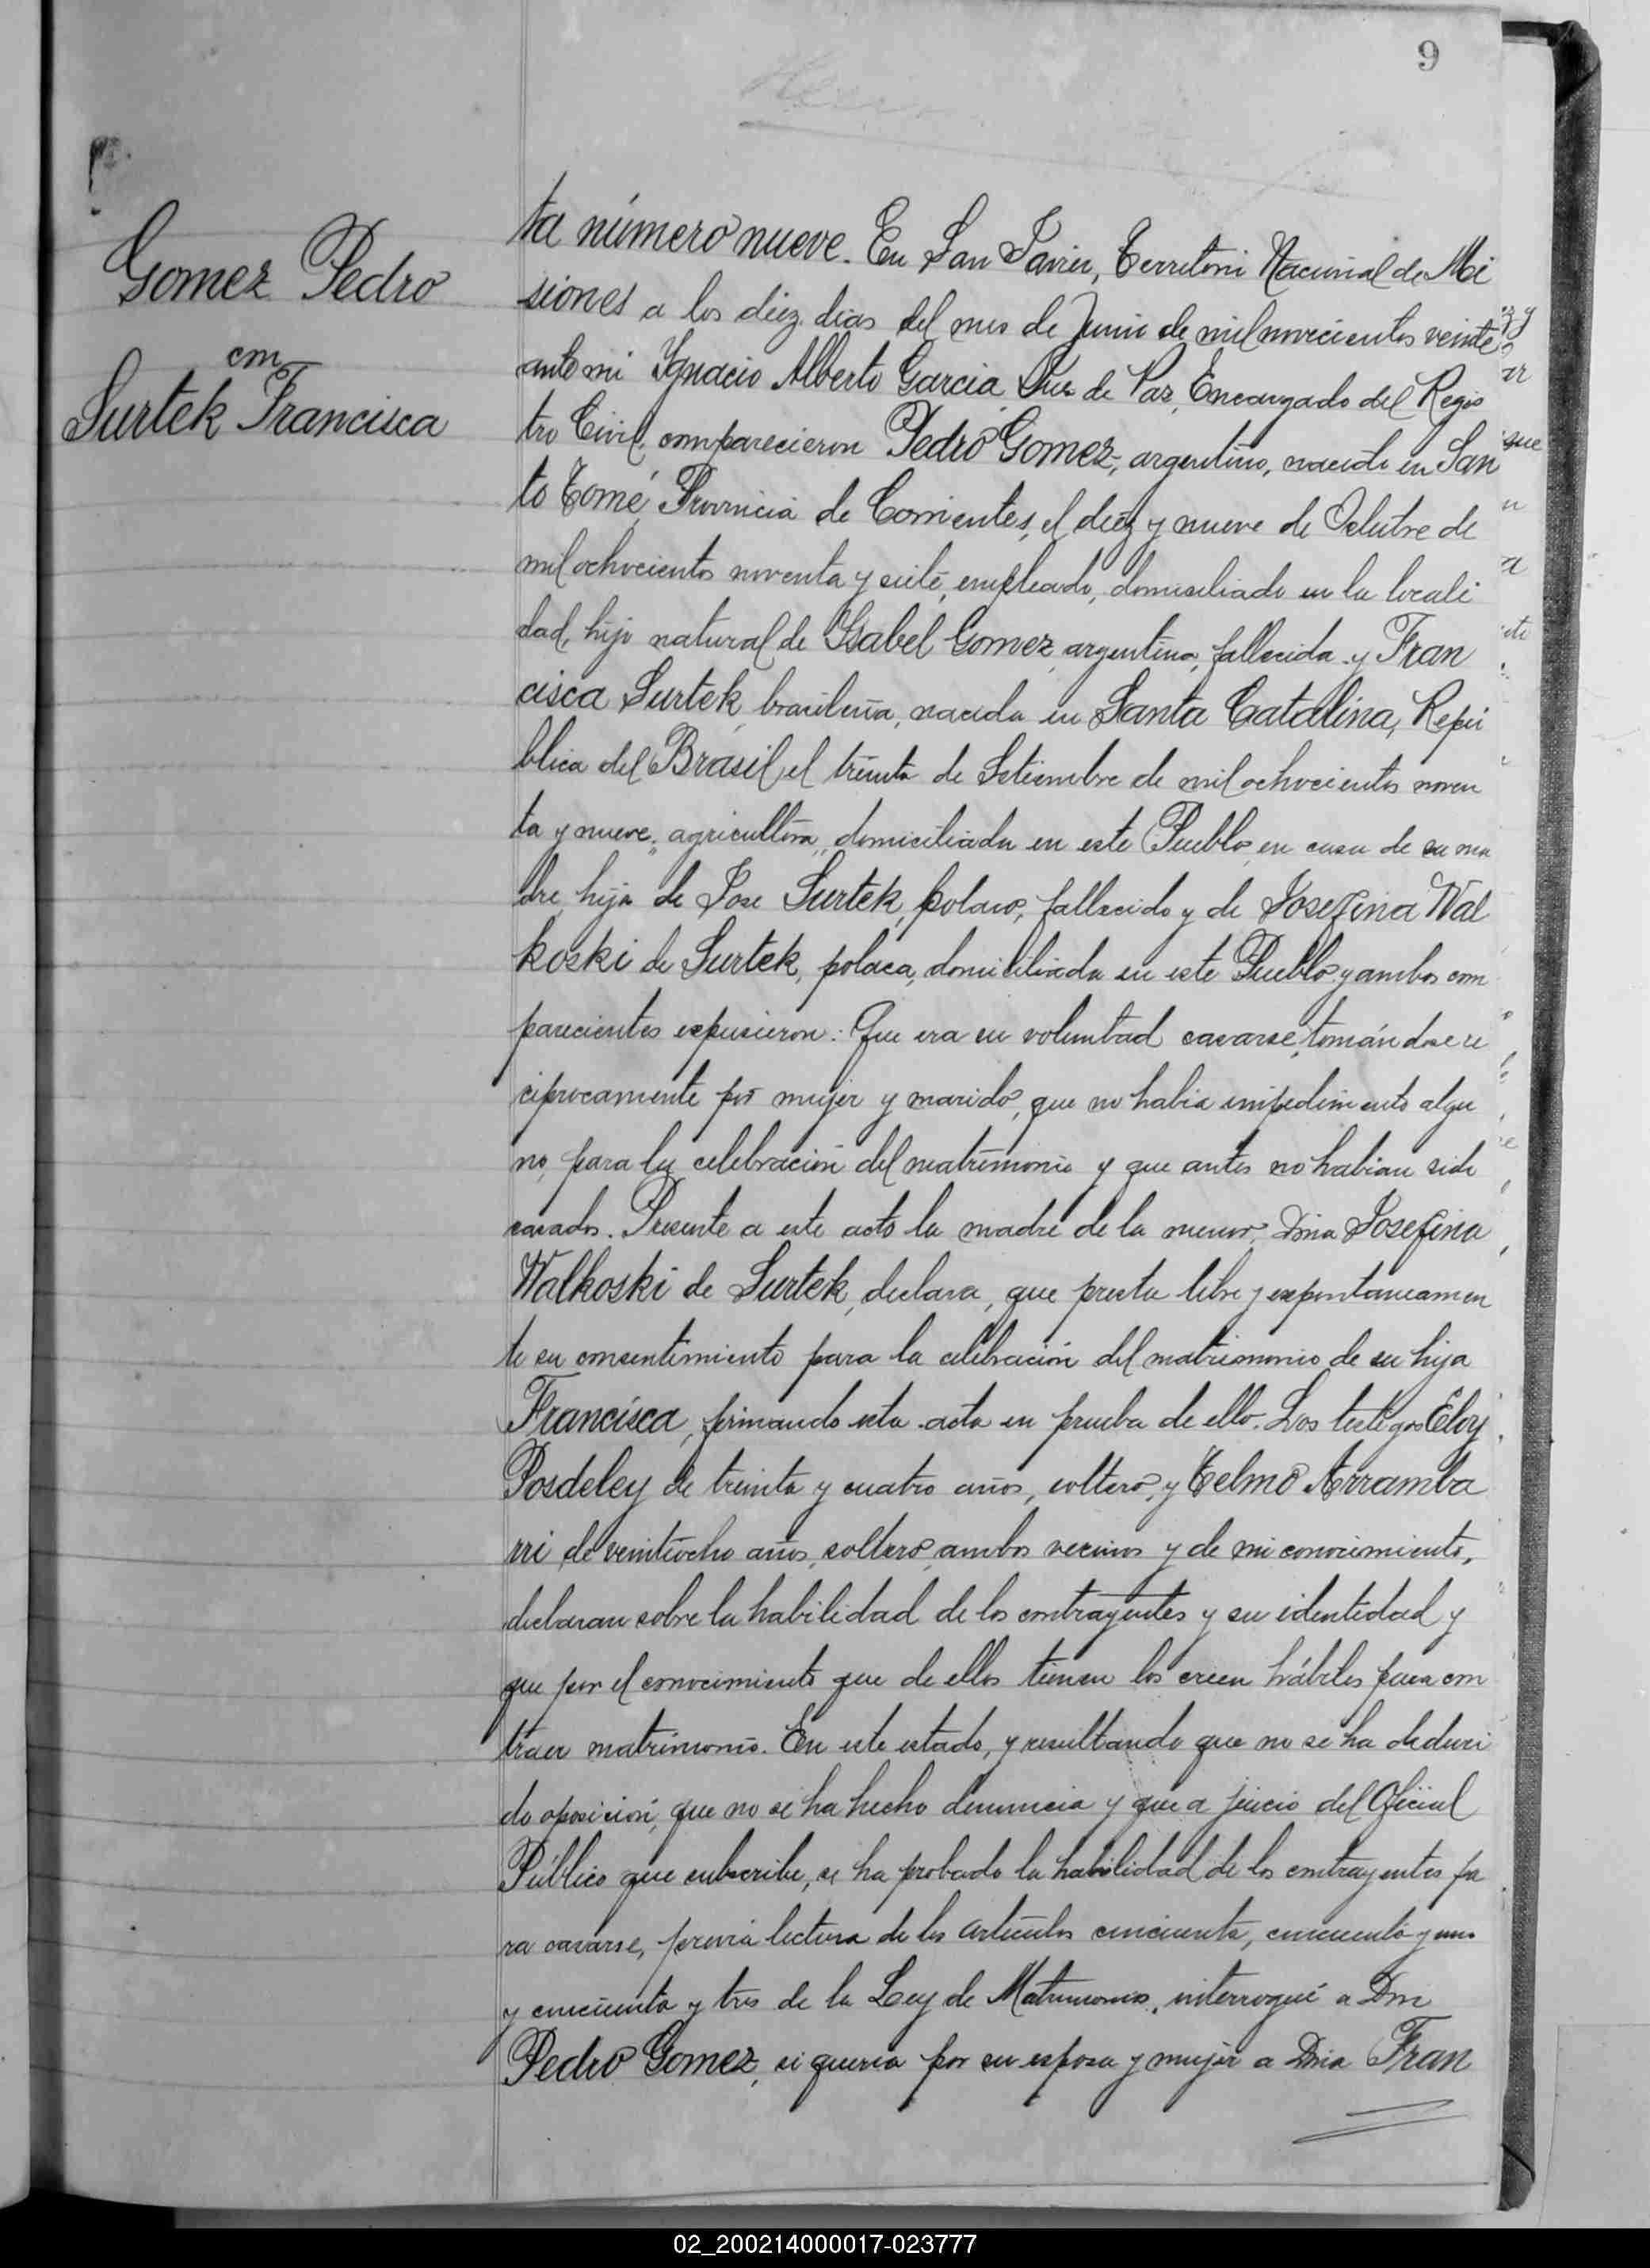 9
Gomez Pedro
con
Surtek Francisca
ta número nueve. En San Javier, Territorio Nacional de Mi
siones a los diez dias del mes de Junio de mil novecientos veinte
ante mi Ygnacio Alberto Garcia Juez de Paz, Encargado del Regis
tro Civil, comparecieron Pedro Gomez, argentino, nacido en San
to Tomé Provincia de Corrientes, el diez y nueve de Octubre de
mil ochocientos noventa y siete, empleado, domiciliado en la locali
dad, hijo natural de Ysabel Gomez argentina, fallecida y Fran
cisca Surtek, brasileña, nacida en Santa Catalina, Repú
blica del Brasil, el treinta de Setiembre de mil ochocientos noven
ta y nueve, agricultora, domiciliada en este Pueblo en casa de su ma
dre, hija de Jose Surtek, polaco, fallecido y de Josefina Wal
koski de Surtek, polaca, domiciliada en este Pueblo y ambos com
parecientes expusieron: Que era su voluntad casarse, tomándose re
ciprocamente por mujer y marido, que no habia impedimento algu
no, para la celebración del matrimonio y que antes no habian sido
casados. Presente a este acto la madre de la menor, Doña Josefina
Walkoski de Surtek, declara, que presta libre y expontaneamen
te su consentimiento para la celebración del matrimonio de su hija
Francisca, firmando esta acta en prueba de ello. Los testigos Eloy
Posdeley de treinta y cuatro años, soltero, y Telmo Arramba
rri de veintiocho años, soltero, ambos vecinos y de mi conocimiento,
declaran sobre la habilidad de los contrayentes y su identidad y
que por el conocimiento que de ellos tienen los creen hábiles para con
traer matrimonio. En este estado, y resultando que no se ha deduci
do oposición, que no se ha hecho denuncia y que a juicio del Oficial
Público que subscribe, se ha probado la habilidad de los contrayentes pa
ra casarse, previa lectura de los artículos cincuenta, cincuenta y uno
y cincuenta y tres de la Ley de Matrimonio, interrogué a Don
Pedro Gomez, si queria por su esposa y mujer a Doña Fran
02_200214000017-023777